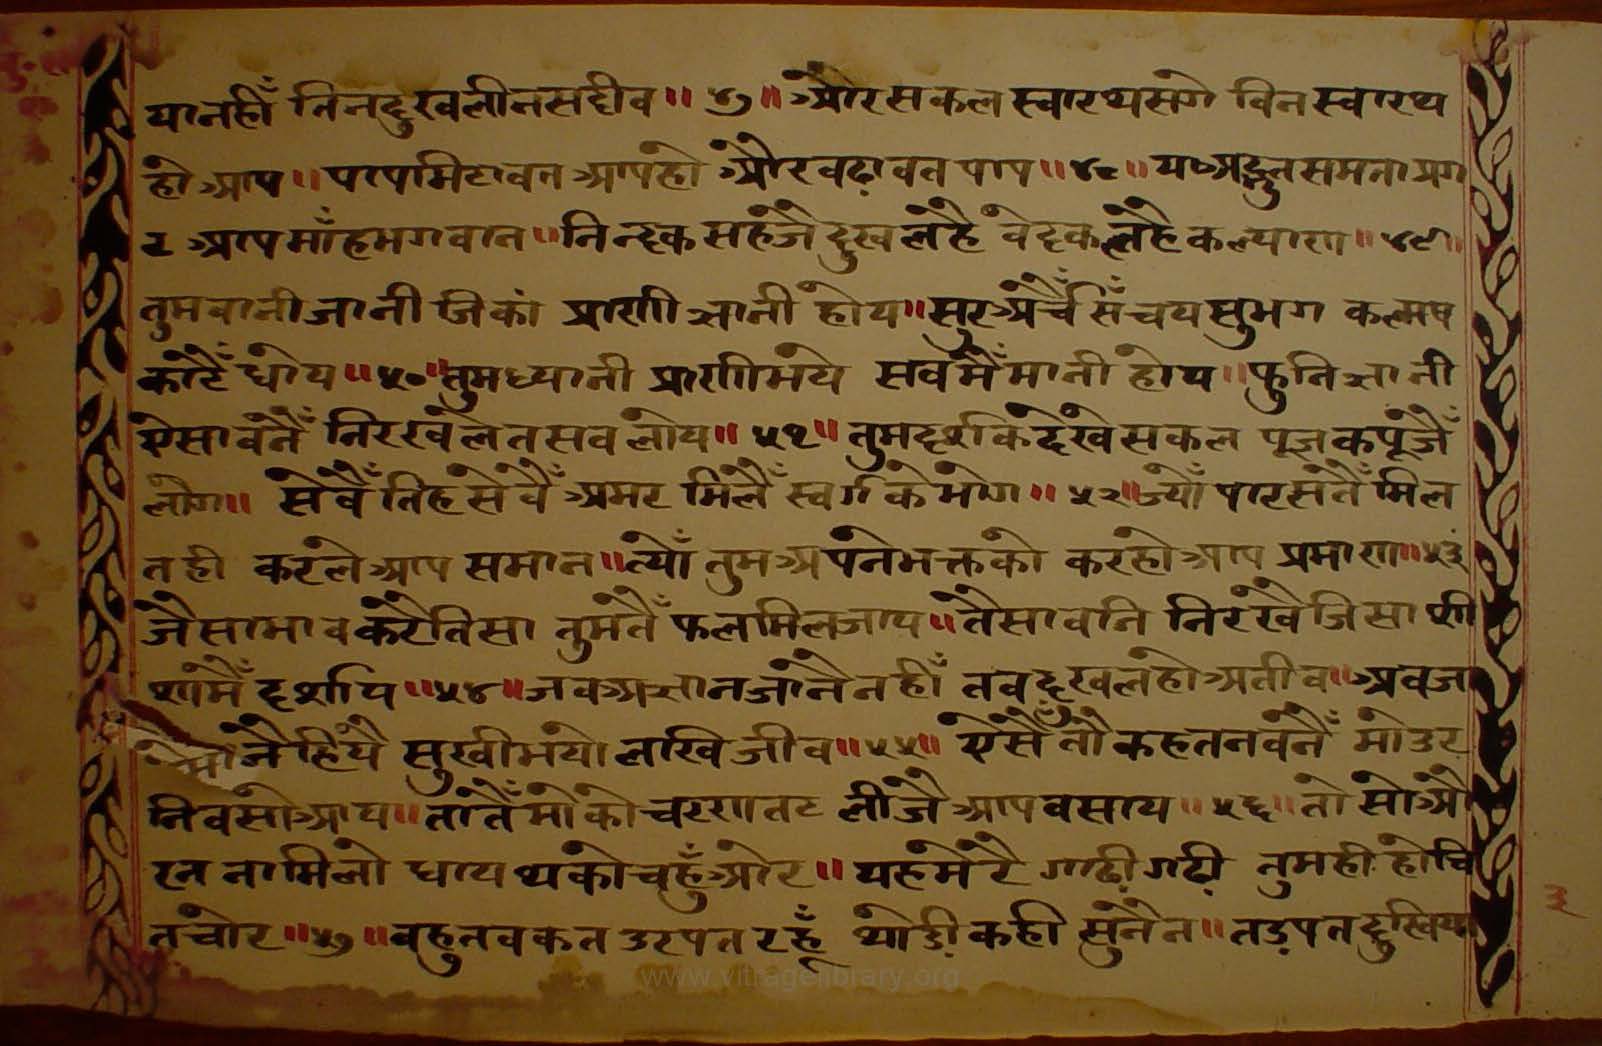 या नहीँ तिन दुख लीन सदीव ॥ ४७ ॥ और सकल स्वारथ सगे विन स्वारथ
हो आप ॥ पाप मिटावन आप हो और वढ़ावन पाप ॥ ४८ ॥ यह अद्भुत समता प्रग
ट आप माँह भगवान ॥ निन्दक सहजै दुख लहै वंदक लहै कल्याण ॥ ४९ ॥
तुम वानी जानी जिकां प्राणी ज्ञानी होय ॥ सुर अर्चैँ सिँचय सुभग कल्मष
काटैँ धोय ॥ ५० ॥ तुम ध्यानी प्राणी भये सव मैँ मानी होय ॥ फुनि ज्ञानी
ऐसा वनैँ निरख लेत सव लोय ॥ ५१ ॥ तुम दर्शक देखे सकल पूजक पूजैँ
लोग ॥ सेवैँ तिह सेवैँ अमर मिलैँ स्वर्ग के भोग ॥ ५२ ॥ ज्योँ पारस तैँ मिल
त ही करले आप समान ॥ त्योँ तुम अपने भक्त को कर हो आप प्रमाण ॥ ५३
जैसा भाव करै तिसा तुम तैँ फल मिल जाय ॥ तैसा वनि निरखै जिसा शी
शा मैँ दर्शाय ॥ ५४ ॥ जव अज्ञान जाने नहीँ तव दुख लहो अतीव ॥ अव ज
नैहियै सुखी भयो लखि जीव ॥ ५५ ॥ ऐसैँ तौ कहत न वनैँ मो उर
निवसो आय ॥ तातैँ मोको चरण तट लीजै आप वसाय ॥ ५६ ॥ तो सो औ
र न ना मिलो धाय थको चहुँ ओर ॥ यह मेरै गाढ़ी गढ़ी तुम ही हो चि
त चोर ॥ ५७ ॥ वहुत वकत उरपत रहूँ थोड़ी कही सुनै न ॥ तड़पत दुखिया
३
www.vitragelibrary.org